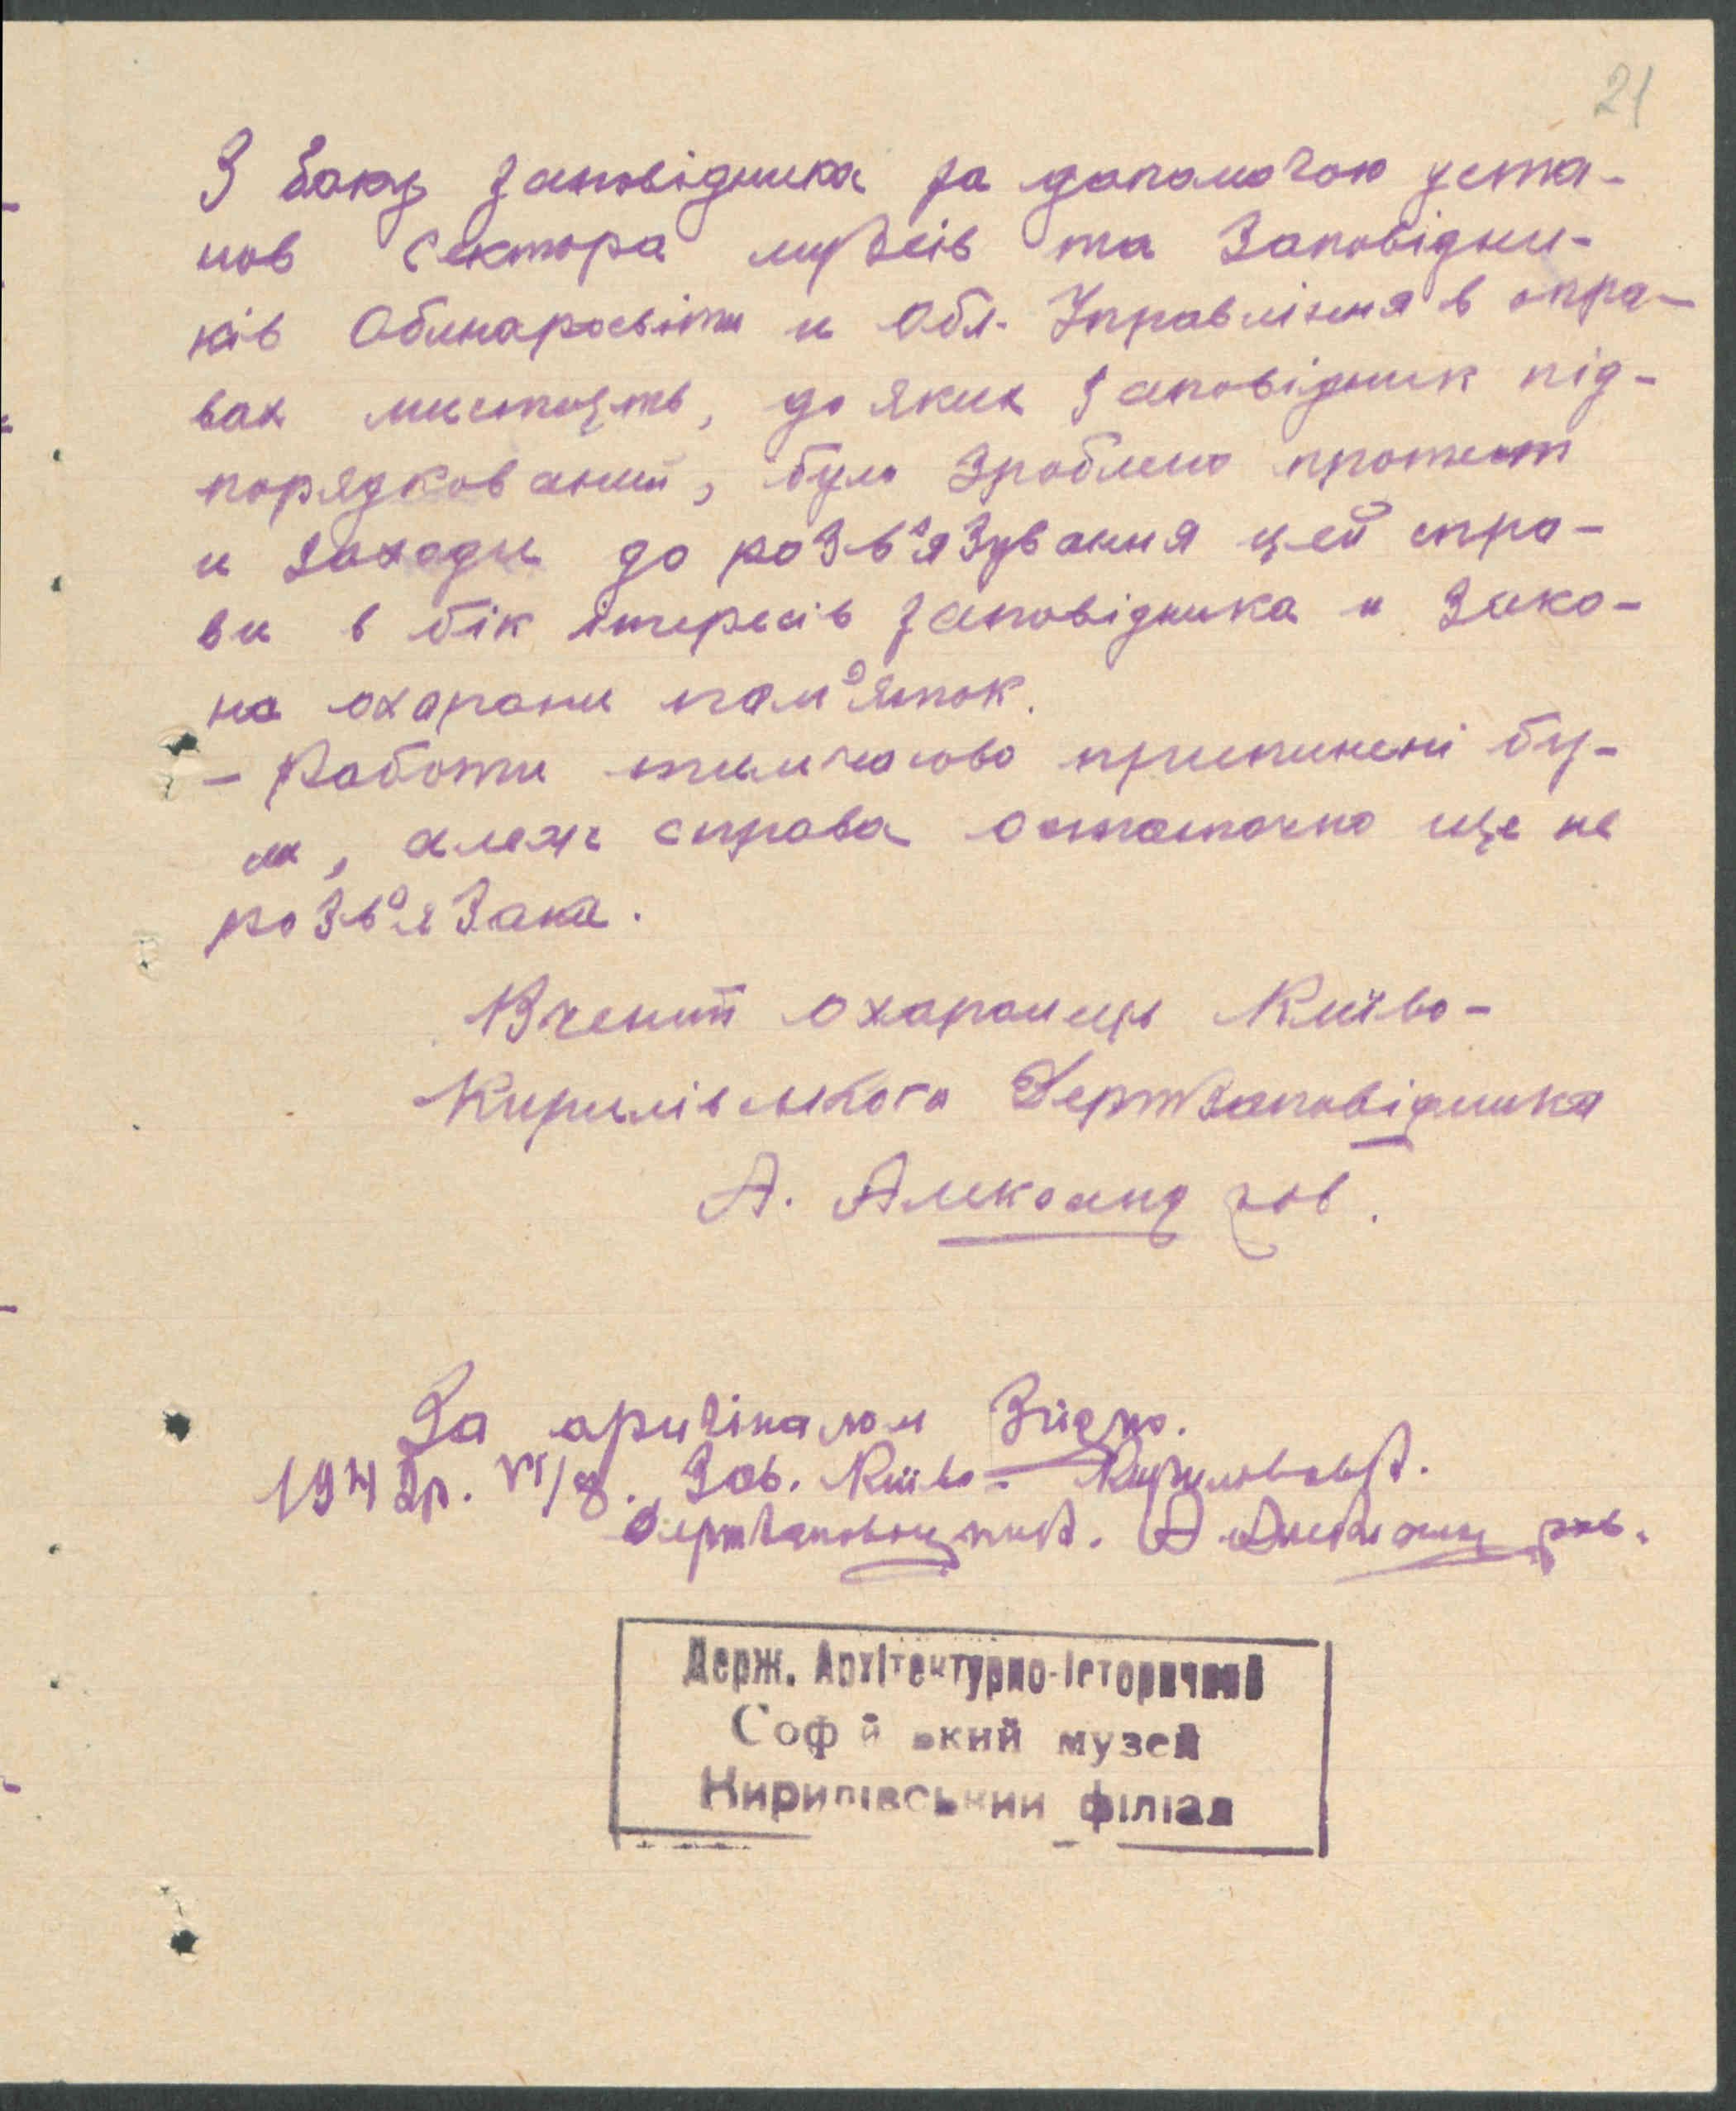 21
З боку заповідника за допомогою уста-
нов Сектора музеїв та Заповідни-
ків Облнаросвіти и Обл. Управління в спра-
вах мистецтв, до яких заповідник під-
порядкований, було зроблено протест
и заходи до розв'язування цей спра-
ви в бік інтересів заповідника и зако-
на охорони пам'яток.
- Работи тимчасово припинені бу-
ли, алеж справа остаточно ще не
розв'язана.
Вчений охоронець Київо-
Кирилівського Держзаповідника
А. Александров.
За оригіналом Згідно.
194 р. VI/8. Зав. Київо-Кирилівськ.
Держзаповідник. А Александров.
Держ. Архітектурно-Історичний
Софійський музей
Кирилівський філіал